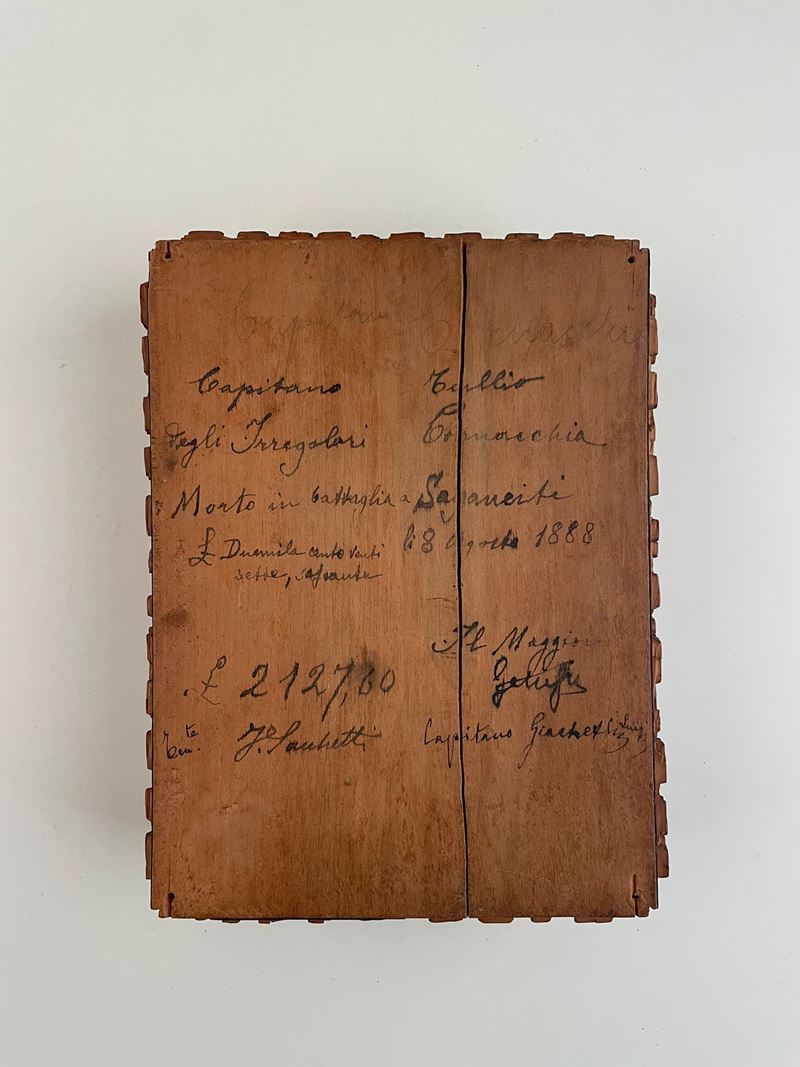 Capitano Cornacchia
Capitano Tullio
degli Irregolari Cornacchia
Morto in battaglia a Saganeiti
£ Duemila cento venti li 8 Agosto 1888
sette, sessanta
Il Maggiore
£ 2127,60
Ten.te Capitano Giachetti